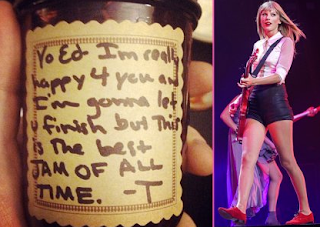 Yo Ed I'm really
happy 4 you and
I'm gonna let
u finish but This
is the best
JAM OF ALL
TIME. -T